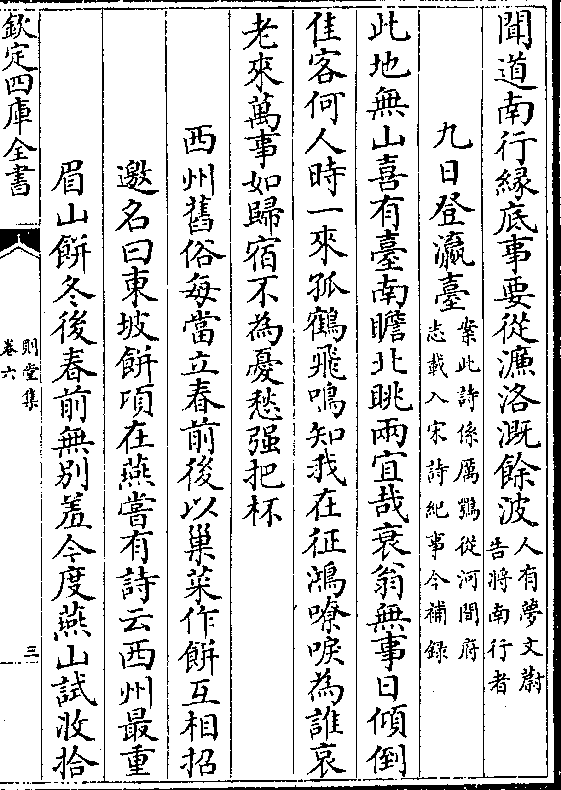 聞道南行縁底事要從濂洛溉餘波人有夢文蔚
告將南行者
九日登瀛臺案此詩係厲鶚從河間府
志載入宋詩紀事今補録
此地無山喜有臺南瞻北眺兩宜哉衰翁無事日傾倒
佳客何人時一來孤鶴飛鳴知我在征鴻嘹唳為誰哀
老來萬事如歸宿不為憂愁强把杯
西州舊俗每當立春前後以巢菜作餅互相招
邀名曰東坡餅頃在燕嘗有詩云西州最重
眉山餅冬後春前無別羞今度燕山試收拾
欽定四庫全書
則堂集
卷六
三